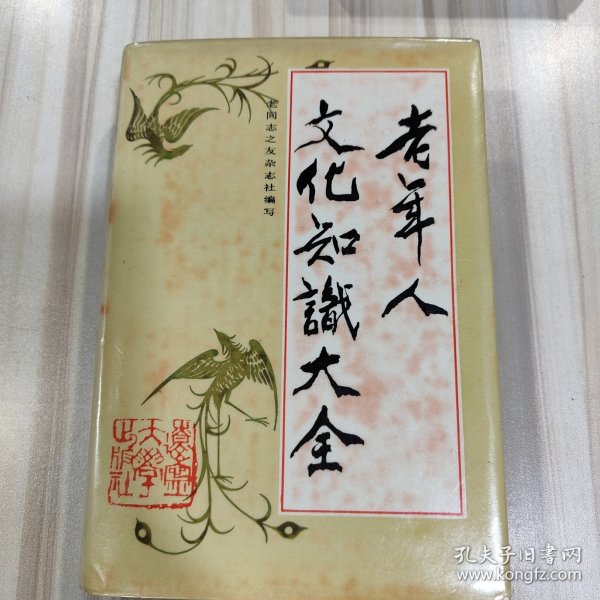 老年人
文化知識大全
老同志之友杂志社编写
遼寧
大學
出版社
孔夫子旧书网
www.kongfz.com